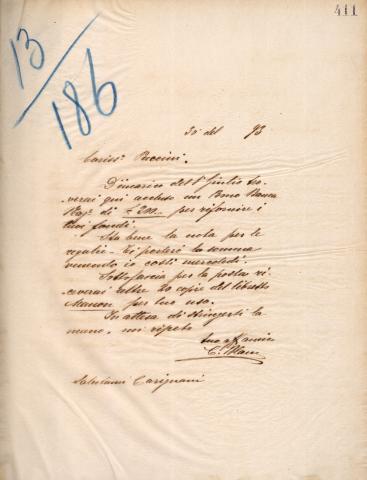 411
13/186
30 del 93
Cariss.º Puccini.
D'incarico del S.r Giulio tro-
verai qui accluso un Buono Banca
Naz.e di £ 200 per rifornire i
tuoi fondi.
Sta bene la nota per le
regalie - ti porterò la somma
venendo io costì mercoledì.
Sotto fascia per la posta ri-
ceverai altre 20 copie del libretto
Manon per tuo uso.
In attesa di stringerti la
mano, mi ripeto
Tuo aff. amico
C.
Salutami Carignani